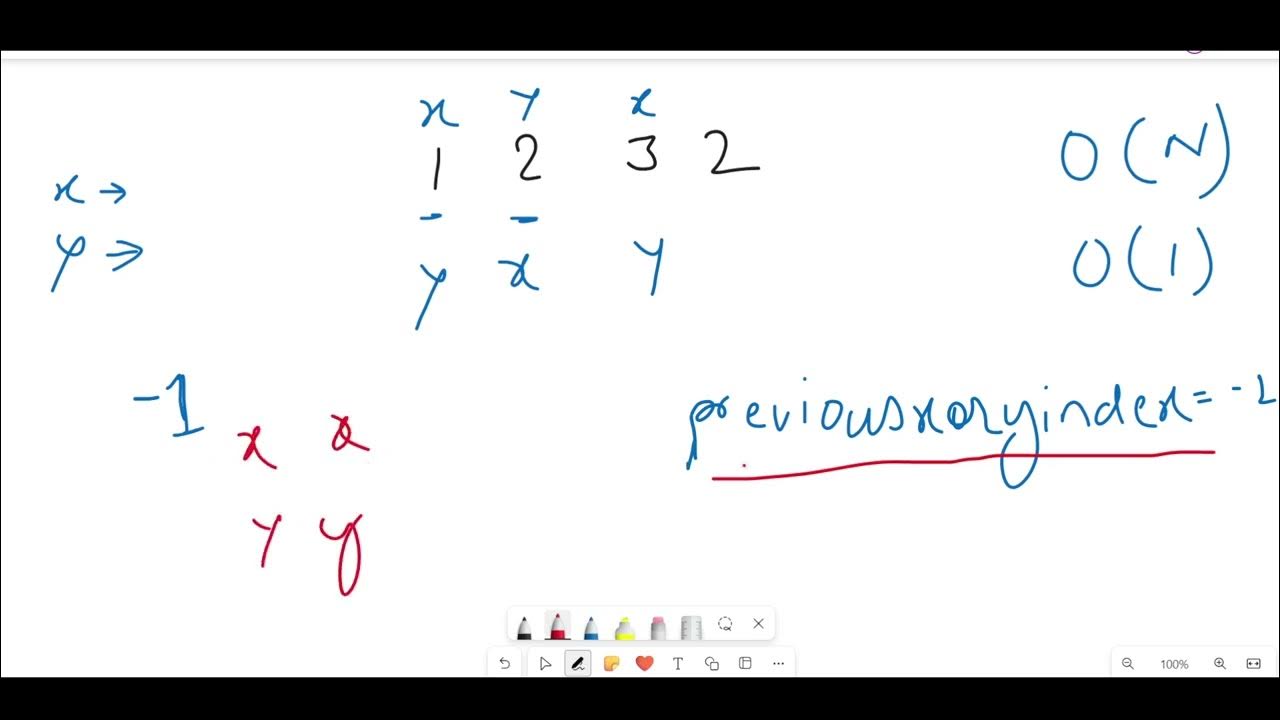 x y x
1 2 3 2
O(N)
x →
y →
- -
y x y
O(1)
-1
previousxoryindex = -1
x x
y y
100%